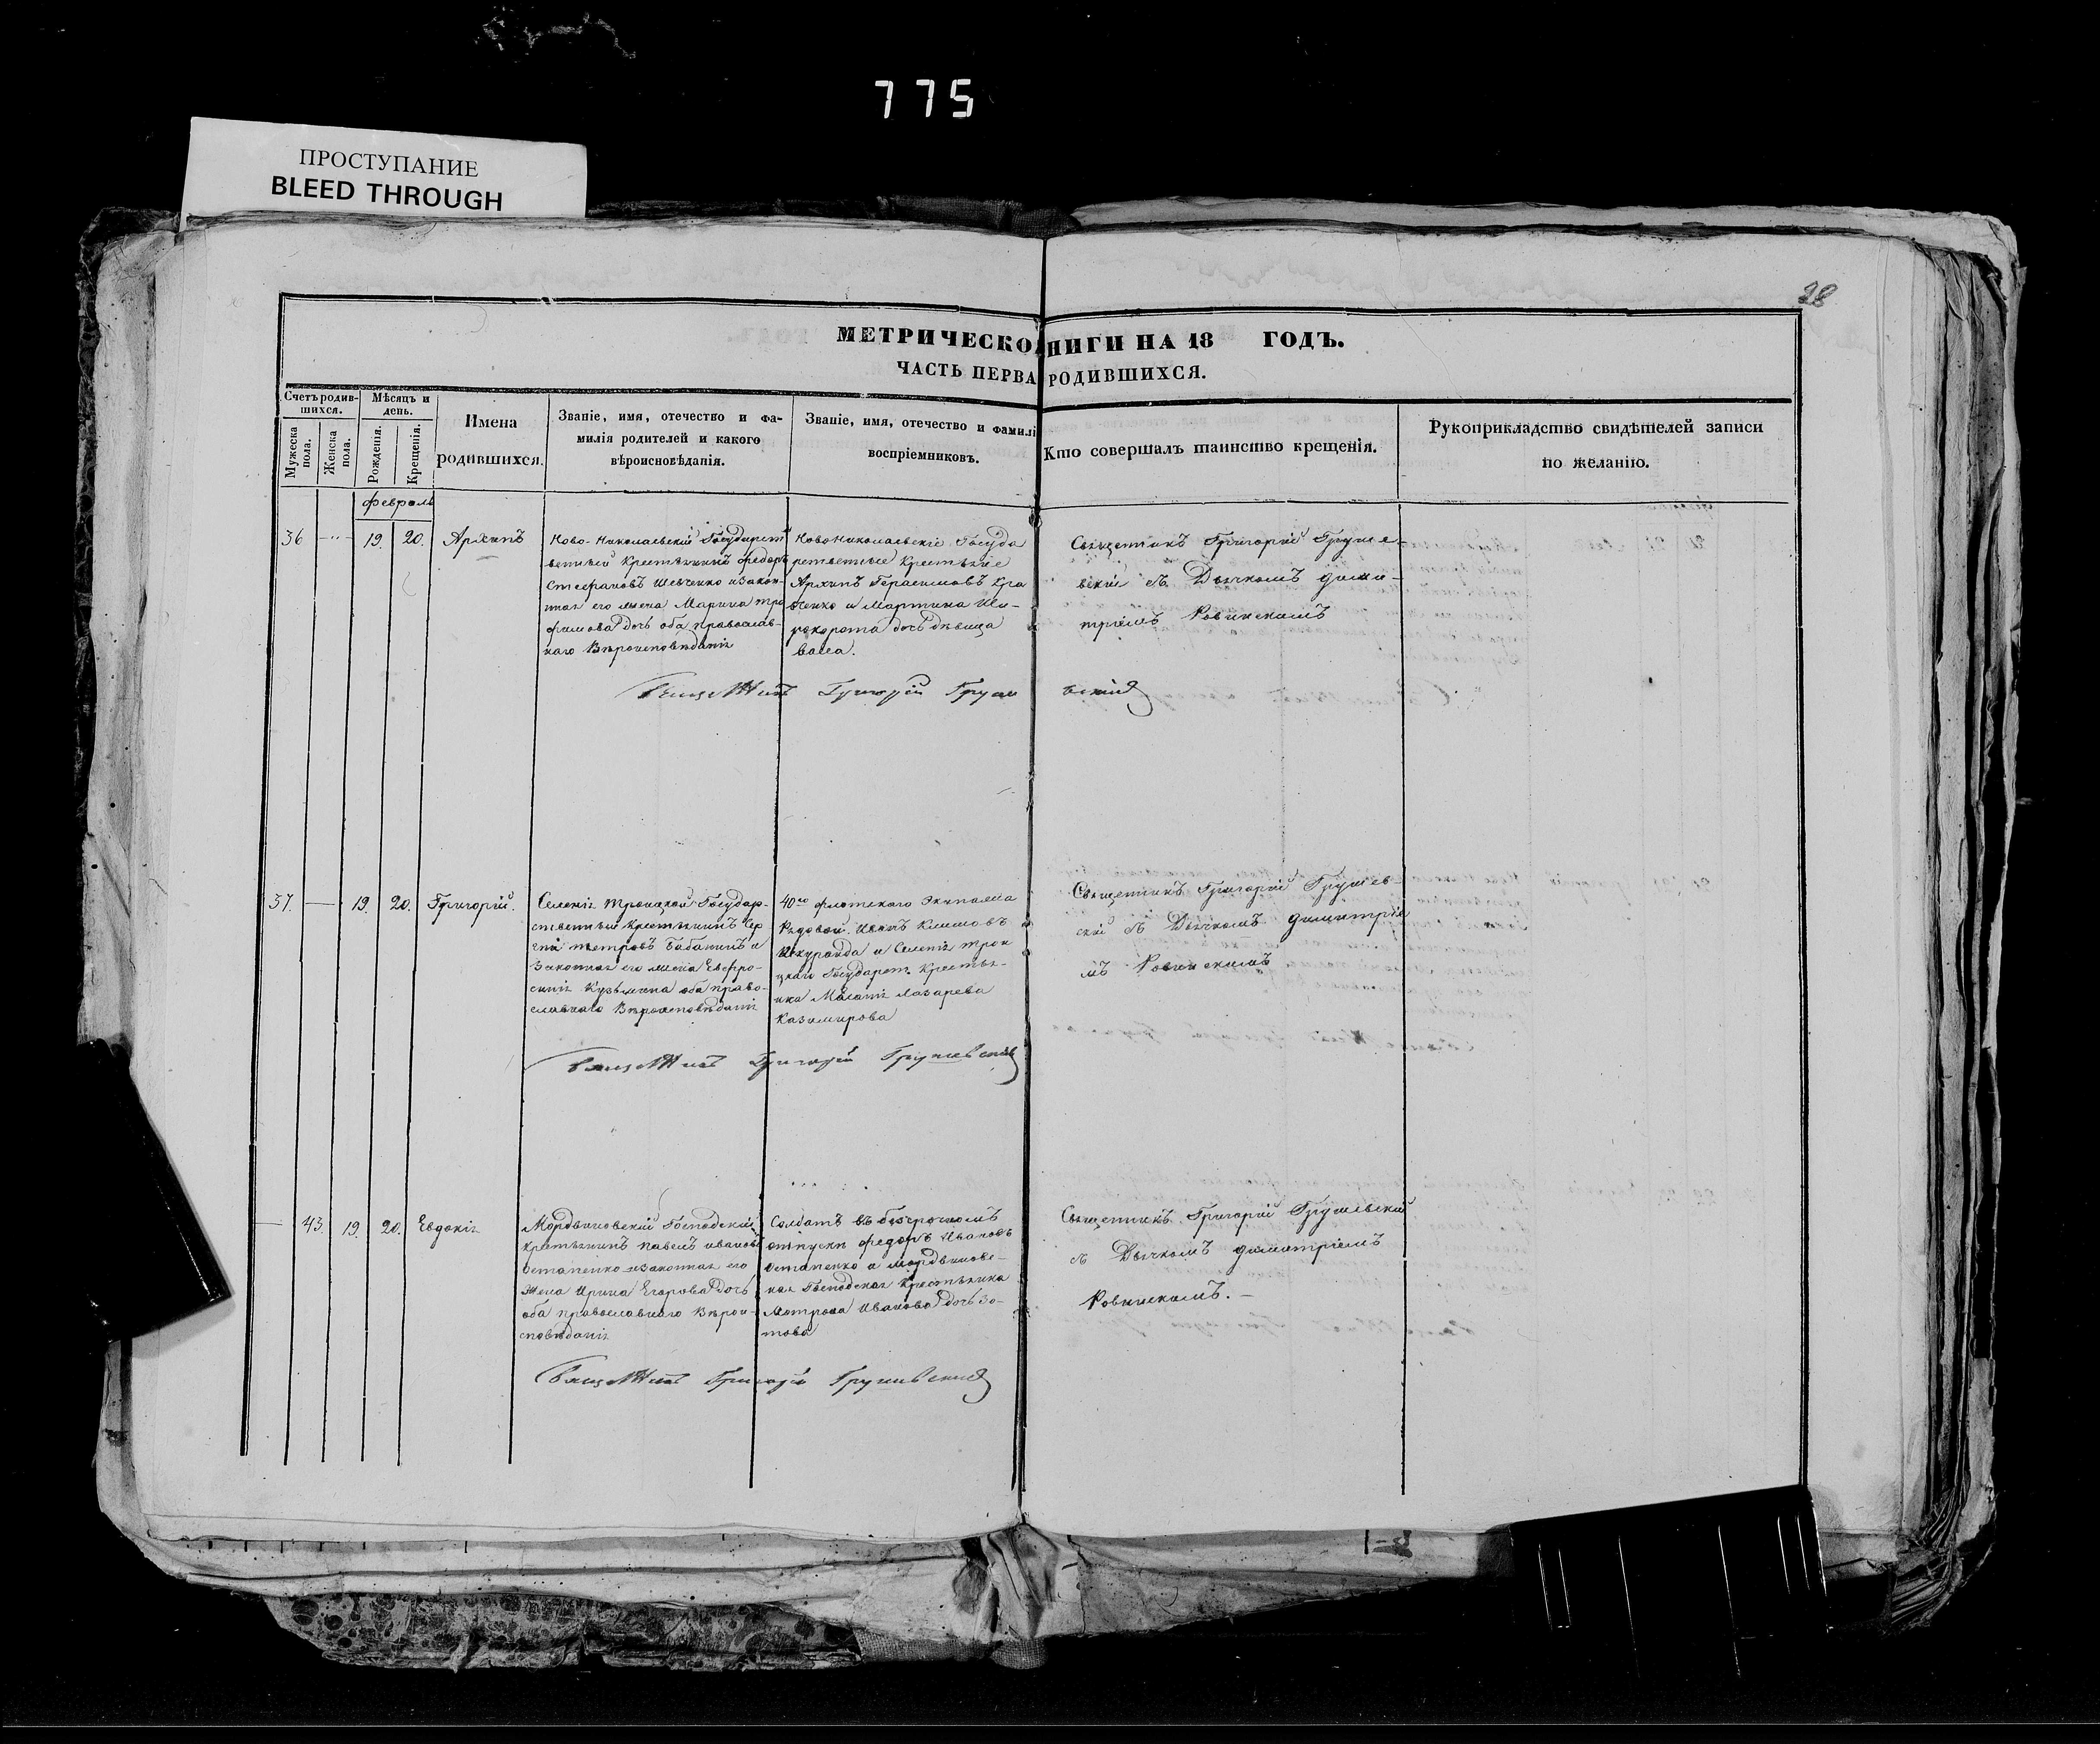 775
ПРОСТУПАНИЕ
BLEED THROUGH
28
МЕТРИЧЕСКО НИГИ НА 18 ГОДЪ.
ЧАСТЬ ПЕРВА РОДИВШИХСЯ.
Счетъ родив-
шихся.
Мужеска
пола.
Женска
пола.
Мѣсяцъ и
день.
Рожденія.
Крещенія.
Имена
родившихся.
Званіе, имя, отечество и фа-
милія родителей и какого
вѣроисповѣданія.
Званіе, имя, отечество и фамилі
воспріемниковъ.
Кто совершалъ таинство крещенія.
Рукоприкладство свидѣтелей записи
по желанію.
февраль
36
19.
20.
Архипъ
Ново-Николаевскій Государст
венный Крестьянинъ Федоръ
Стефановъ Шевченко и закон-
ная его жена Марина Тро
фимова дочь оба православ-
наго Вѣроисповѣданія
Новониколаевскіе Госуда
рственные Крестьяне
Архипъ Герасимовъ Кра
и Мартина
дочь дѣвица
Священникъ Григорій Груше-
вскій съ Дьячкомъ Дими-
тріемъ Ровинскимъ
Священникъ Григорій Груше вскій
37.
19.
20.
Григорій.
Селенія Троицкой Государ-
ственный Крестьянинъ Сер
гѣй Петровъ Бабанинъ и
Законная его жена Евфро-
синія Кузьмина оба право-
славнаго Вѣроисповѣданія
40го флотскаго Экипажа
Рядовой Иванъ Климовъ
и Селенія Трои
цкаго Государст. Крестья-
нка Маланія Лазарева
Казимирова
Священникъ Григорій Грушев-
скій съ Дьячкомъ Димитріе
мъ Ровинскимъ
Священникъ Григорій Грушевскій
43.
19.
20.
Евдокія
Мордвиновскій Господскій
Крестьянинъ Павелъ Ивановъ
Остапенко и Законная его
Жена Ирина Егорова дочь
оба православнаго Вѣрои-
сповѣданія
Солдатъ въ безсрочномъ
отпуску Федоръ Ивановъ
Остапенко и Мордвиновс-
кая Господская Крестьянка
Мотрона Иванова дочь Зо-
това
Священникъ Григорій Грушевскій
съ Дьячкомъ Димитріемъ
Ровинскимъ.
Священникъ Григорій Грушевскій